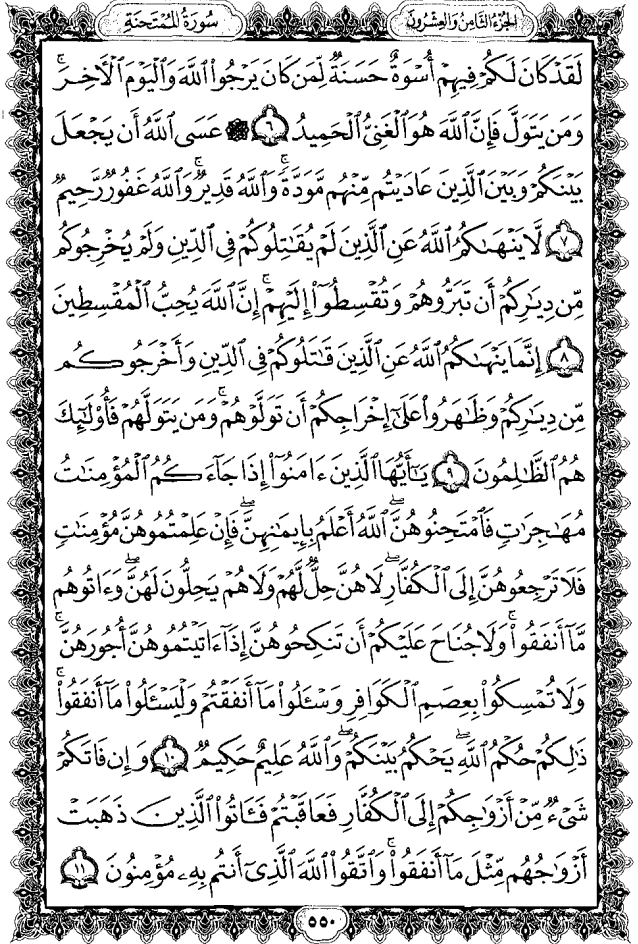 الجزء الثامن والعشرون
سورة الممتحنة
لَقَدْ كَانَ لَكُمْ فِيهِمْ أُسْوَةٌ حَسَنَةٌ لِّمَن كَانَ يَرْجُوا۟ ٱللَّهَ وَٱلْيَوْمَ ٱلْءَاخِرَ ۚ
وَمَن يَتَوَلَّ فَإِنَّ ٱللَّهَ هُوَ ٱلْغَنِىُّ ٱلْحَمِيدُ ٦ ۞ عَسَى ٱللَّهُ أَن يَجْعَلَ
بَيْنَكُمْ وَبَيْنَ ٱلَّذِينَ عَادَيْتُم مِّنْهُم مَّوَدَّةً ۚ وَٱللَّهُ قَدِيرٌ ۚ وَٱللَّهُ غَفُورٌ رَّحِيمٌ
٧ لَّا يَنْهَىٰكُمُ ٱللَّهُ عَنِ ٱلَّذِينَ لَمْ يُقَٰتِلُوكُمْ فِى ٱلدِّينِ وَلَمْ يُخْرِجُوكُم
مِّن دِيَٰرِكُمْ أَن تَبَرُّوهُمْ وَتُقْسِطُوٓا۟ إِلَيْهِمْ ۚ إِنَّ ٱللَّهَ يُحِبُّ ٱلْمُقْسِطِينَ
٨ إِنَّمَا يَنْهَىٰكُمُ ٱللَّهُ عَنِ ٱلَّذِينَ قَٰتَلُوكُمْ فِى ٱلدِّينِ وَأَخْرَجُوكُم
مِّن دِيَٰرِكُمْ وَظَٰهَرُوا۟ عَلَىٰٓ إِخْرَاجِكُمْ أَن تَوَلَّوْهُمْ ۚ وَمَن يَتَوَلَّهُمْ فَأُو۟لَٰٓئِكَ
هُمُ ٱلظَّٰلِمُونَ ٩ يَٰٓأَيُّهَا ٱلَّذِينَ ءَامَنُوٓا۟ إِذَا جَآءَكُمُ ٱلْمُؤْمِنَٰتُ
مُهَٰجِرَٰتٍ فَٱمْتَحِنُوهُنَّ ۖ ٱللَّهُ أَعْلَمُ بِإِيمَٰنِهِنَّ ۖ فَإِنْ عَلِمْتُمُوهُنَّ مُؤْمِنَٰتٍ
فَلَا تَرْجِعُوهُنَّ إِلَى ٱلْكُفَّارِ ۖ لَا هُنَّ حِلٌّ لَّهُمْ وَلَا هُمْ يَحِلُّونَ لَهُنَّ ۖ وَءَاتُوهُم
مَّآ أَنفَقُوا۟ ۚ وَلَا جُنَاحَ عَلَيْكُمْ أَن تَنكِحُوهُنَّ إِذَآ ءَاتَيْتُمُوهُنَّ أُجُورَهُنَّ ۚ
وَلَا تُمْسِكُوا۟ بِعِصَمِ ٱلْكَوَافِرِ وَسْـَٔلُوا۟ مَآ أَنفَقْتُمْ وَلْيَسْـَٔلُوا۟ مَآ أَنفَقُوا۟ ۚ
ذَٰلِكُمْ حُكْمُ ٱللَّهِ ۖ يَحْكُمُ بَيْنَكُمْ ۖ وَٱللَّهُ عَلِيمٌ حَكِيمٌ ١٠ وَإِن فَاتَكُمْ
شَىْءٌ مِّنْ أَزْوَٰجِكُمْ إِلَى ٱلْكُفَّارِ فَعَاقَبْتُمْ فَـَٔاتُوا۟ ٱلَّذِينَ ذَهَبَتْ
أَزْوَٰجُهُم مِّثْلَ مَآ أَنفَقُوا۟ ۚ وَٱتَّقُوا۟ ٱللَّهَ ٱلَّذِىٓ أَنتُم بِهِۦ مُؤْمِنُونَ ١١
٥٥٠